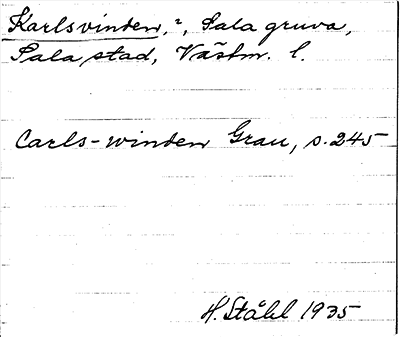 Karlsvinden, ², Sala gruva,
Sala stad, Västm. l.
Carls-winden Grau, s. 245
H. Ståhl 1935